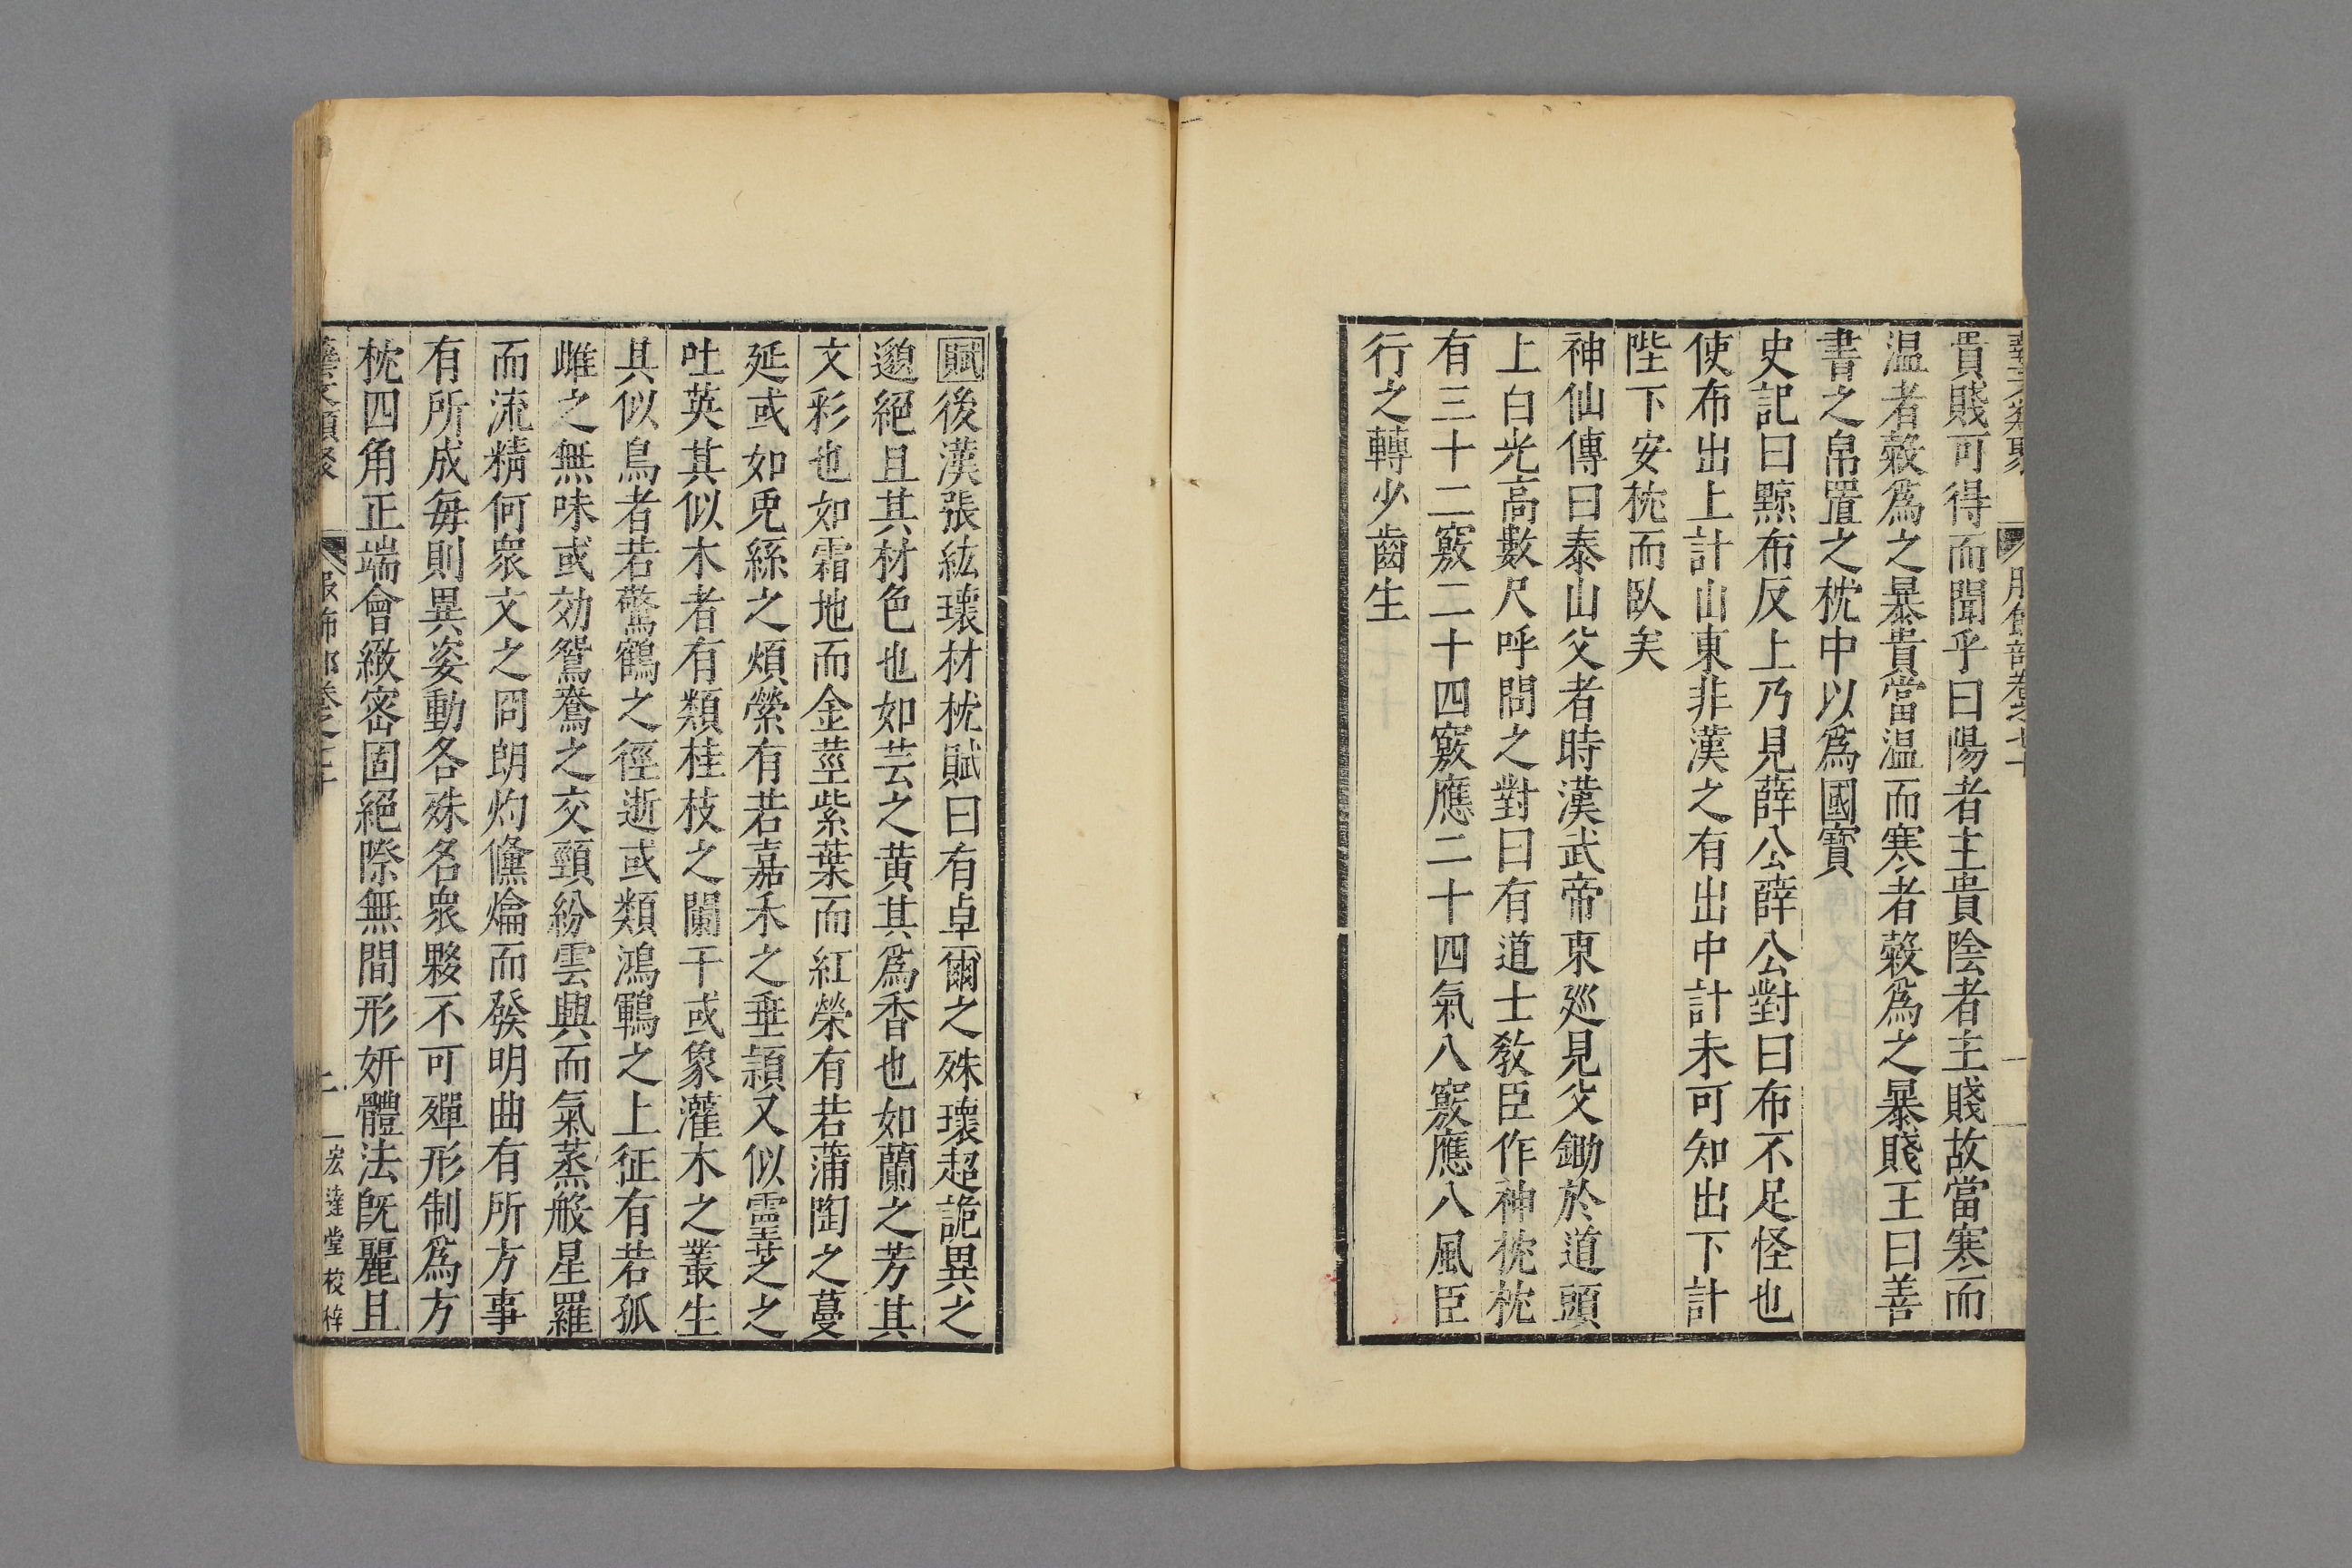 貴賤可得而聞乎曰陽者主貴陰者主賤故當寒而
温者榖爲之暴貴當温而寒者榖爲之暴賤王曰善
書之帛置之枕中以爲國寶
史記曰黥布反上乃見薛公薛公對曰布不足怪也
使布出上計山東非漢之有出中計未可知出下計
陛下安枕而臥矣
神仙傳曰泰山父者時漢武帝東巡見父鋤於道頭
上白光高數尺呼問之對曰有道士敎臣作神枕枕
有三十二竅二十四竅應二十四氣八竅應八風臣
行之轉少齒生
賦後漢張紘瓌材枕賦曰有卓爾之殊瓌超詭異之
邈絕且其材色也如芸之黄其爲香也如蘭之芳其
文彩也如霜地而金莖紫葉而紅榮有若蒲陶之蔓
延或如兎絲之煩縈有若嘉禾之垂穎又似靈芝之
吐英其似木者有類桂枝之闌干或象灌木之叢生
其似鳥者若驚鶴之徑逝或類鴻鶤之上征有若孤
雌之無味或効鴛鴦之交頸紛雲興而氣蒸般星羅
而流精何衆文之冏朗灼儵爚而發明曲有所方事
有所成每則異姿動各殊名衆夥不可殫形制爲方
枕四角正端會緻密固絕際無間形妍體法旣麗且
宏達堂校梓